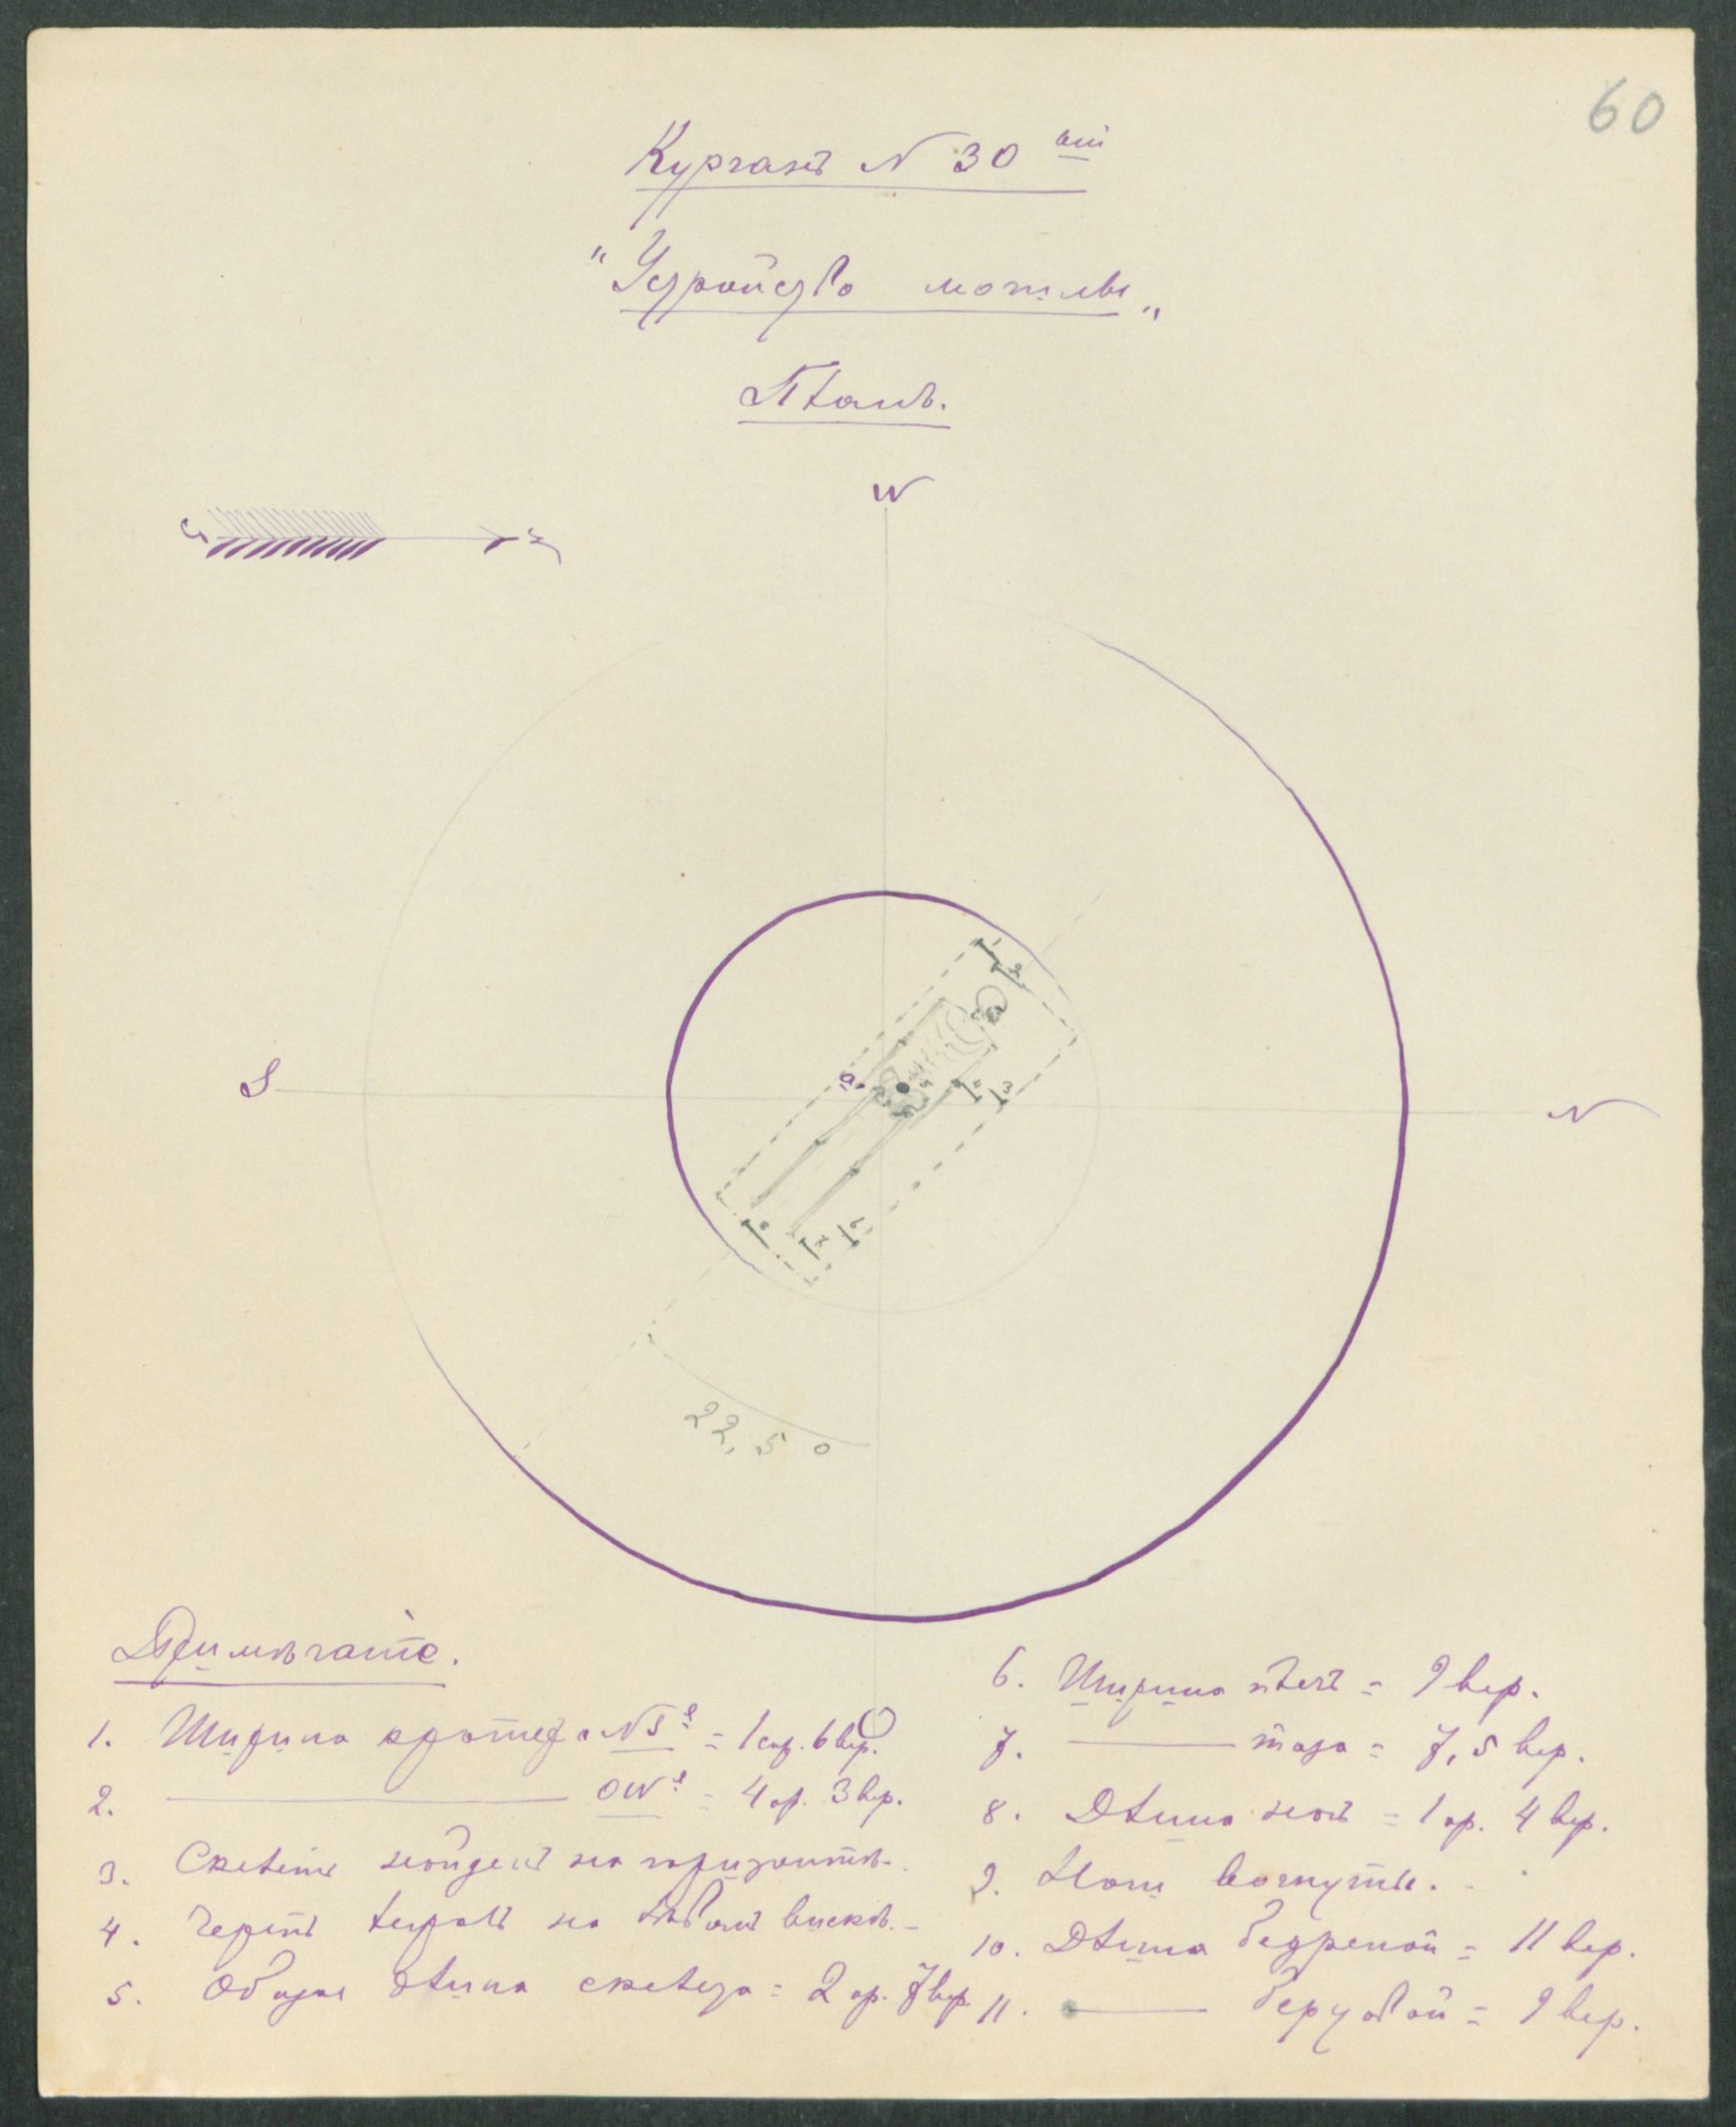 60
Курганъ N 30 ый
"Устройство могилы„
Планъ.
W
S
N
а.
22,5°
Примѣчаніе.
1. Ширина кратера NS = 1 саж. 6 вер.
2. ——— OW = 4 ар. 3 вер.
3. Скелетъ найденъ на горизонтѣ.
4. Черепъ лежалъ на лѣвомъ вискѣ.
5. Общая длина скелета = 2 ар. 7 вер.
6. Ширина плечъ = 9 вер.
7. ——— таза = 7,5 вер.
8. Длина ногъ = 1 ар. 4 вер.
9. Ноги вогнуты.
10. Длина бедреной = 11 вер.
11. ——— берцовой = 9 вер.